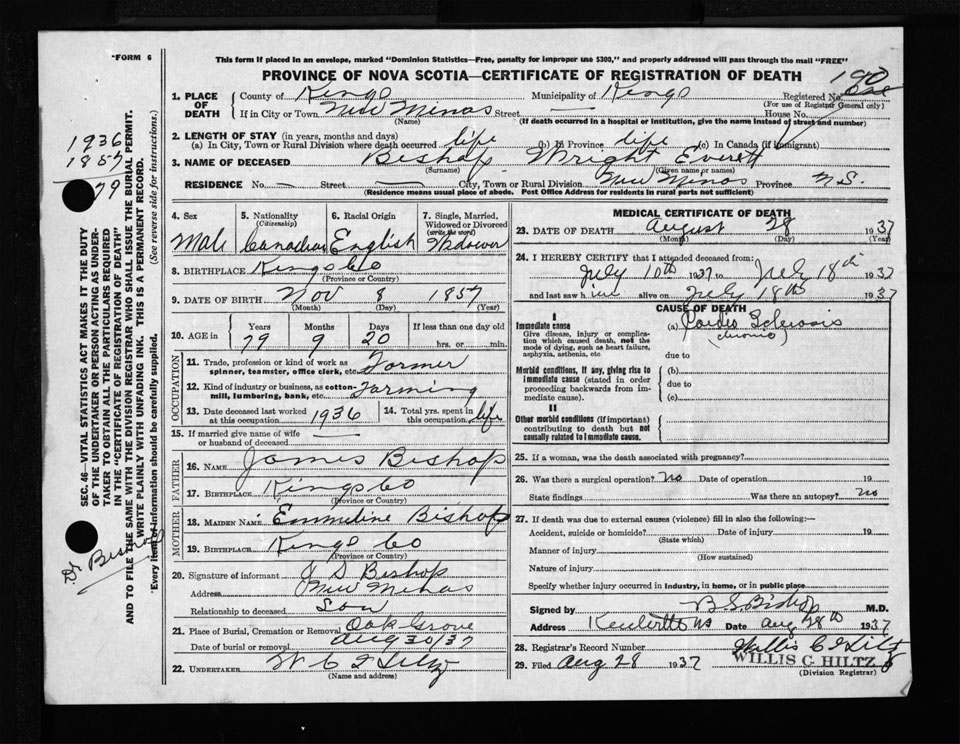 "FORM 6
This form if placed in an envelope, marked "Dominion Statistics—Free, penalty for improper use $300," and properly addressed will pass through the mail "FREE"
PROVINCE OF NOVA SCOTIA—CERTIFICATE OF REGISTRATION OF DEATH
190
1. PLACE OF DEATH
County of Kings Municipality of Kings Registered No.
(For use of Registrar General only)
If in City or Town New Minas Street — House No.
(Name) (If death occurred in a hospital or institution, give the name instead of street and number)
2. LENGTH OF STAY (in years, months and days)
(a) In City, Town or Rural Division where death occurred life (b) In Province life (c) In Canada (if immigrant)
3. NAME OF DECEASED Bishop Wright Everett
(Surname) (Given name or names)
RESIDENCE No. — Street — City, Town or Rural Division New Minas Province N.S.
(Residence means usual place of abode. Post Office Address for residents in rural parts not sufficient)
4. Sex Male
5. Nationality (Citizenship) Canadian
6. Racial Origin English
7. Single, Married, Widowed or Divorced (write the word) Widower
8. BIRTHPLACE Kings Co
(Province or Country)
9. DATE OF BIRTH Nov 8 1857
(Month) (Day) (Year)
10. AGE in Years Months Days If less than one day old
79 9 20 hrs. or min.
OCCUPATION
11. Trade, profession or kind of work as spinner, teamster, office clerk, etc. Farmer
12. Kind of industry or business, as cotton-mill, lumbering, bank, etc. Farming
13. Date deceased last worked at this occupation 1936
14. Total yrs. spent in this occupation life
15. If married give name of wife or husband of deceased —
FATHER
16. NAME James Bishop
17. BIRTHPLACE Kings Co
(Province or Country)
MOTHER
18. MAIDEN NAME Emmeline Bishop
19. BIRTHPLACE Kings Co
(Province or Country)
20. Signature of informant J S Bishop
Address New Minas
Relationship to deceased Son
21. Place of Burial, Cremation or Removal Oak Grove
Date of burial or removal Aug 30/37
22. UNDERTAKER W C Hiltz
(Name and address)
MEDICAL CERTIFICATE OF DEATH
23. DATE OF DEATH August 28 1937
(Month) (Day) (Year)
24. I HEREBY CERTIFY that I attended deceased from:
July 10th 1937 to July 18th 1937
and last saw him alive on July 18th 1937
CAUSE OF DEATH
I
Immediate cause
Give disease, injury or complication which caused death, not the mode of dying, such as heart failure, asphyxia, asthenia, etc
(a) Cardio Sclerosis
(chronic)
due to
Morbid conditions, if any, giving rise to immediate cause (stated in order proceeding backwards from immediate cause).
(b)
due to
(c)
II
Other morbid conditions (if important) contributing to death but not causally related to immediate cause.
25. If a woman, was the death associated with pregnancy?
26. Was there a surgical operation? No Date of operation 19
State findings Was there an autopsy? no
27. If death was due to external causes (violence) fill in also the following:—
Accident, suicide or homicide? Date of injury 19
(State which)
Manner of injury
(How sustained)
Nature of injury
Specify whether injury occurred in industry, in home, or in public place
Signed by B S Bishop M.D.
Address Kentville NS Date Aug 28th 1937
28. Registrar's Record Number
Willis C Hiltz
29. Filed Aug 28 1937 WILLIS C. HILTZ
(Division Registrar)
1936
1857
79
Dr Bishop
SEC. 46—VITAL STATISTICS ACT MAKES IT THE DUTY
OF THE UNDERTAKER OR PERSON ACTING AS UNDER-
TAKER TO OBTAIN ALL THE PARTICULARS REQUIRED
IN THE "CERTIFICATE OF REGISTRATION OF DEATH"
AND TO FILE THE SAME WITH THE DIVISION REGISTRAR WHO SHALL ISSUE THE BURIAL PERMIT.
WRITE PLAINLY WITH UNFADING INK. THIS IS A PERMANENT RECORD.
Every item of information should be carefully supplied. (See reverse side for instructions.)